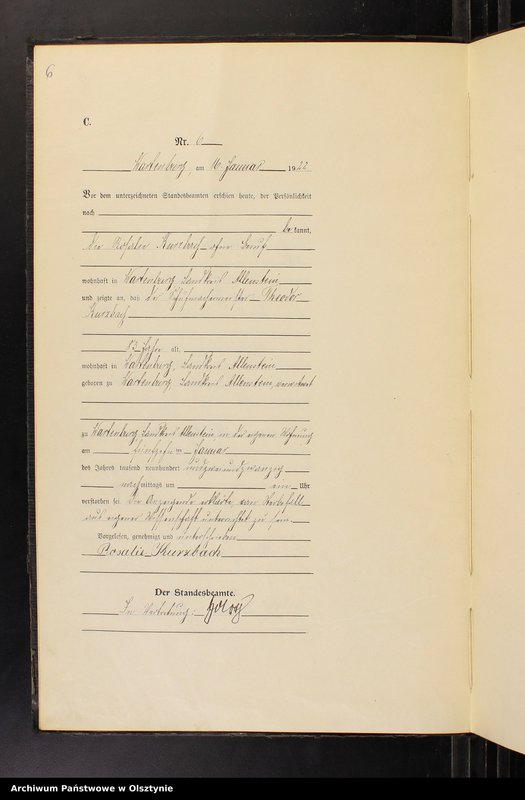 6
C.
Nr. 6
Wartenburg, am 16. Januar 1922
Vor dem unterzeichneten Standesbeamten erschien heute, der Persönlichkeit
nach
be kannt,
die Rosalie Kurzbach ohne Beruf
wohnhaft in Wartenburg, Landkreis Allenstein
und zeigte an, daß der Schuhmachermeister Theodor
Kurzbach
Jahre alt,
wohnhaft in Wartenburg, Landkreis Allenstein
geboren zu Wartenburg, Landkreis Allenstein, verwitwet
zu Wartenburg Landkreis Allenstein, in der eigenen Wohnung
am fünfzehnten Januar
des Jahres tausend neunhundert undzweiundzwanzig
nach mittags um ein Uhr
verstorben sei. Die Anzeigende erklärte, vom Sterbefall
aus eigener Wissenschaft unterrichtet zu sein.
Vorgelesen, genehmigt und unterschrieben
Rosalie Kurzbach
Der Standesbeamte.
In Vertretung:
Archiwum Państwowe w Olsztynie